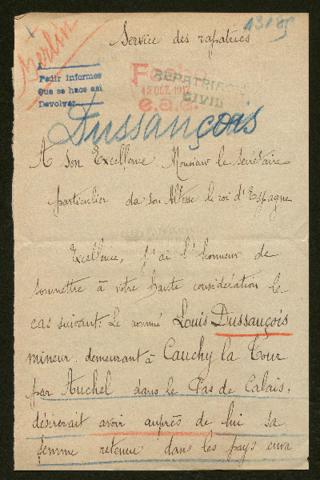 13185
Service des rapatriés
Berlin
Pedir informes
Que se hace asi
Devolver
REPATRIACION
CIVIL
12 DIC. 1917
e.a.a.
Dussançois
A Son Excellence Monsieur le Secrétaire
particulier de son Altesse le roi d'Espagne
Excellence, J'ai l'honneur de
soumettre à votre haute considération le
cas suivant: Le nommé Louis Dussançois
mineur demeurant à Cauchy la Tour
par Auchel dans le Pas de Calais,
désirerait avoir auprès de lui sa
femme retenue dans les pays enva